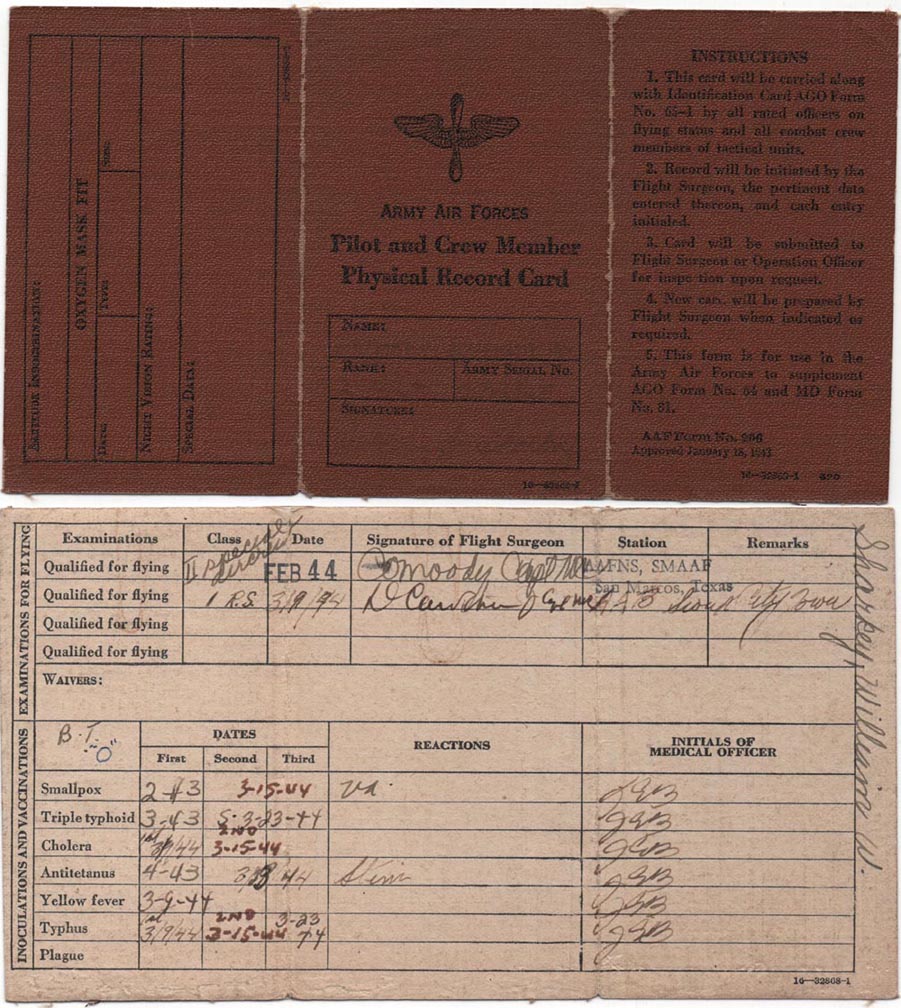 ALTITUDE INDOCTRINATION:
OXYGEN MASK FIT
DATE: TYPE: SIZE:
NIGHT VISION RATING:
SPECIAL DATA:
ARMY AIR FORCES
Pilot and Crew Member
Physical Record Card
NAME:
RANK: ARMY SERIAL NO.
SIGNATURE:
16—32868-1
INSTRUCTIONS
1. This card will be carried along
with Identification Card AGO Form
No. 65-1 by all rated officers on
flying status and all combat crew
members of tactical units.
2. Record will be initiated by the
Flight Surgeon, the pertinent data
entered thereon, and each entry
initialed.
3. Card will be submitted to
Flight Surgeon or Operation Officer
for inspection upon request.
4. New card will be prepared by
Flight Surgeon when indicated or
required.
5. This form is for use in the
Army Air Forces to supplement
AGO Form No. 64 and MD Form
No. 81.
AAF Form No. 206
Approved January 18, 1943
16—32868-1 GPO
EXAMINATIONS FOR FLYING
Examinations Class Date Signature of Flight Surgeon Station Remarks
Qualified for flying II special FEB 44 Moody Capt AAFNS, SMAAF
San Marcos, Texas
Qualified for flying 1 R.S. 3/9/44 AAB Sioux City Iowa
Qualified for flying
Qualified for flying
WAIVERS:
Sharkey, William W.
INOCULATIONS AND VACCINATIONS
B.T. "O"
DATES REACTIONS INITIALS OF MEDICAL OFFICER
First Second Third
Smallpox 2-43 3-15-44 va. JGB
Triple typhoid 3-43 S. 3-23-44 JGB
Cholera 1st 3/9/44 2ND 3-15-44 JGB
Antitetanus 4-43 44 Stim JGB
Yellow fever 3-9-44 JGB
Typhus 1st 3/9/44 2ND 3-15-44 3-23 44 JGB
Plague
16—32868-1